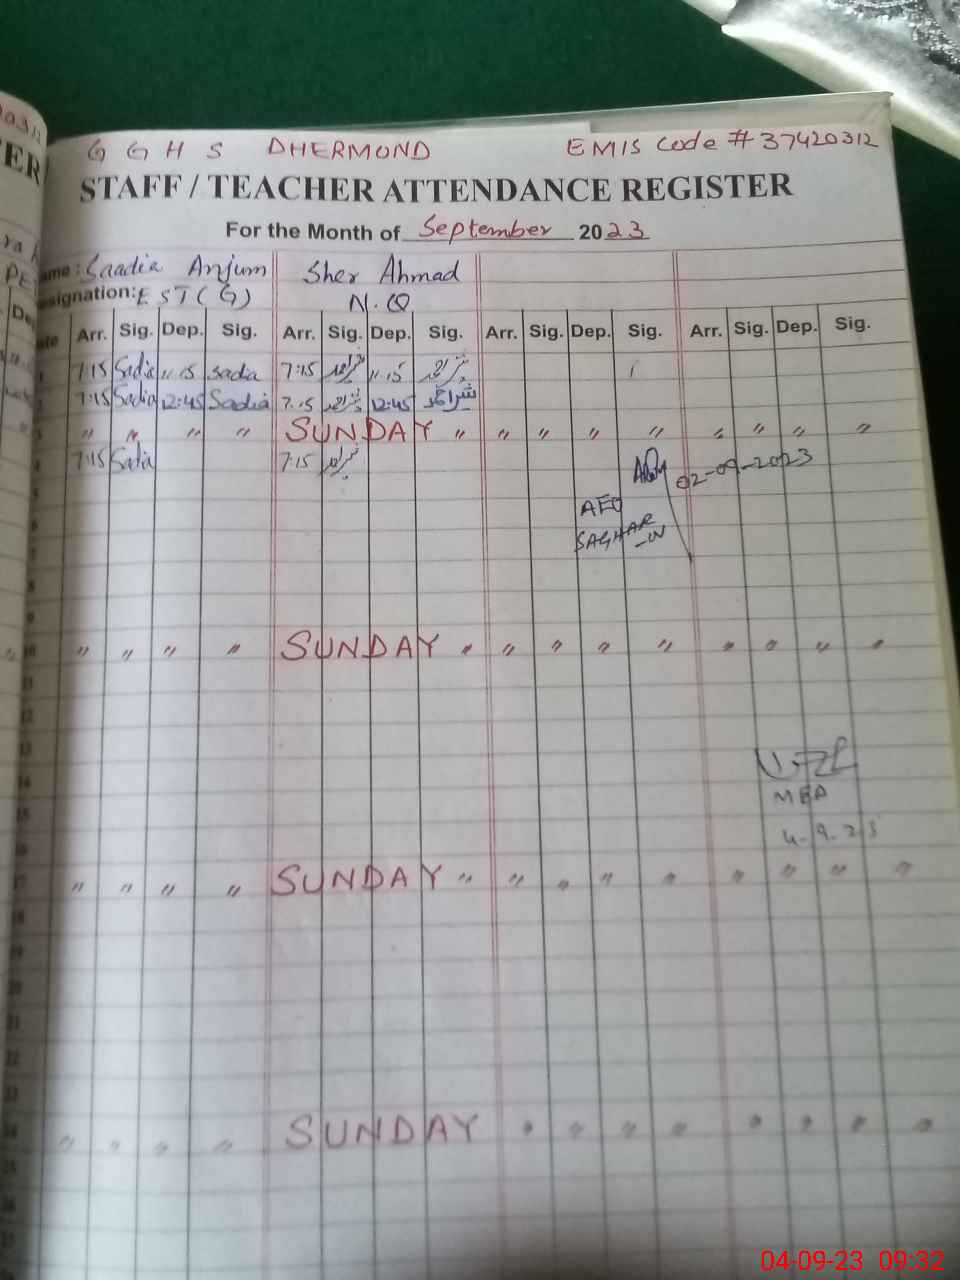 G G H S DHERMOND EMIS Code # 37420312
STAFF / TEACHER ATTENDANCE REGISTER
For the Month of September 2023
ame : Saadia Anjum Sher Ahmad
signation: EST (G) N.Q
Arr. Sig. Dep. Sig. Arr. Sig. Dep. Sig. Arr. Sig. Dep. Sig. Arr. Sig. Dep. Sig.
7:15 Sadia 11:15 Sadia 7:15 شیراحمد 11:15 شیراحمد
7:15 Sadia 12:45 Sadia 7:15 شیراحمد 12:45 شیراحمد
3 " " " " SUNDAY " " " " " " " " "
4 7:15 Sadia 7:15 شیراحمد
02-09-2023
5
AEO
6
SAGHAR
7
8
9
10 " " " " SUNDAY " " " " " " " " "
11
12
13
14
MEA
15
4.9.23
16
17 " " " " SUNDAY " " " " " " " " "
18
19
20
21
22
23
24 " " " " SUNDAY " " " " " " " " "
25
26
27
04-09-23 09:32